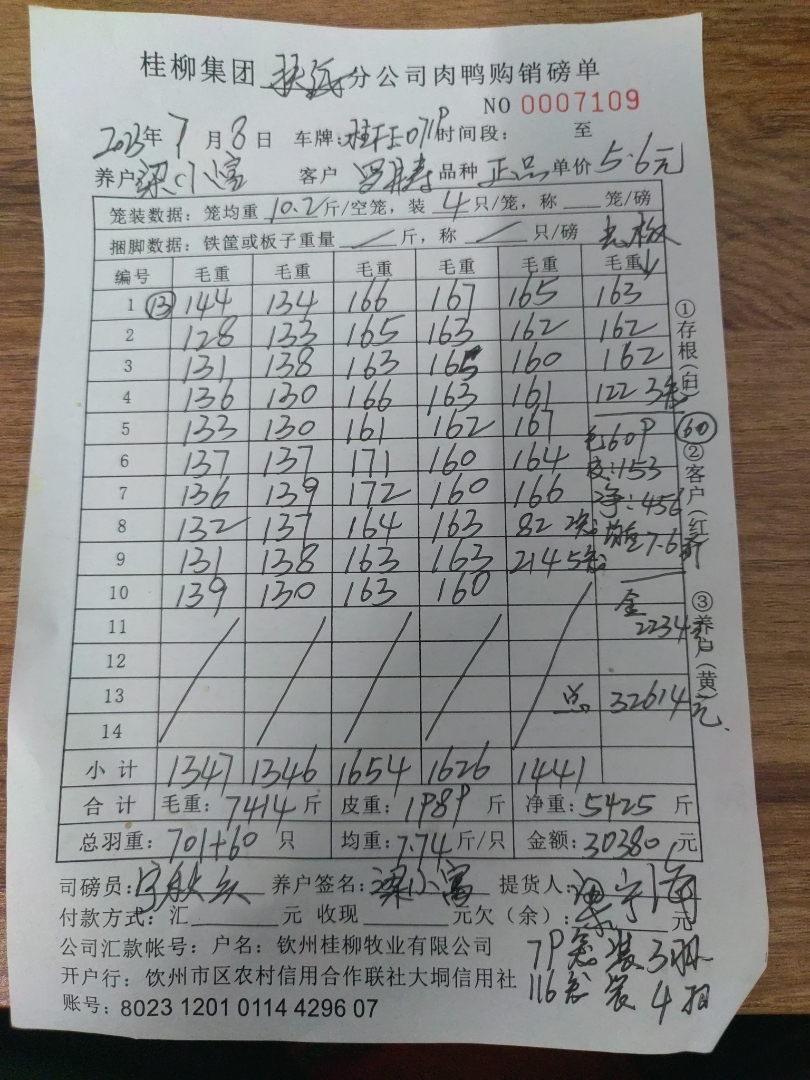 桂柳集团 分公司肉鸭购销磅单
NO 0007109
2023年7月8日 车牌: 时间段: 至
养户 梁小富 客户 品种 正品 单价 5.6元
笼装数据: 笼均重 10.2 斤/空笼, 装 4 只/笼, 称 笼/磅
捆脚数据: 铁筐或板子重量 / 斤, 称 / 只/磅
编号 毛重 毛重 毛重 毛重 毛重 毛重
1 ⑬ 144 134 166 167 165 163
2 128 133 165 163 162 162
3 131 138 163 165 160 162
4 136 130 166 163 161 122 3
5 133 130 161 162 167
6 137 137 171 160 164
7 136 139 172 160 166
8 132 137 164 163 82 2
9 131 138 163 163 214 5
10 139 130 163 160
11
12
13
14
60
毛:609
皮:153
净:456
均重7.6斤
金2234元
总 32614元.
小计 1347 1346 1654 1626 1441
合计 毛重: 7414 斤 皮重: 1989 斤 净重: 5425 斤
总羽重: 701+60 只 均重: 7.74 斤/只 金额: 30380 元
司磅员: 养户签名: 梁小富 提货人:
付款方式: 汇 元 收现 元欠(余): 元
公司汇款帐号: 户名: 钦州桂柳牧业有限公司
开户行: 钦州市区农村信用合作联社大垌信用社
账号: 8023 1201 0114 4296 07
79笼 装 3羽
116笼 装 4羽
①存根(白)
②客户(红)
③养户(黄)